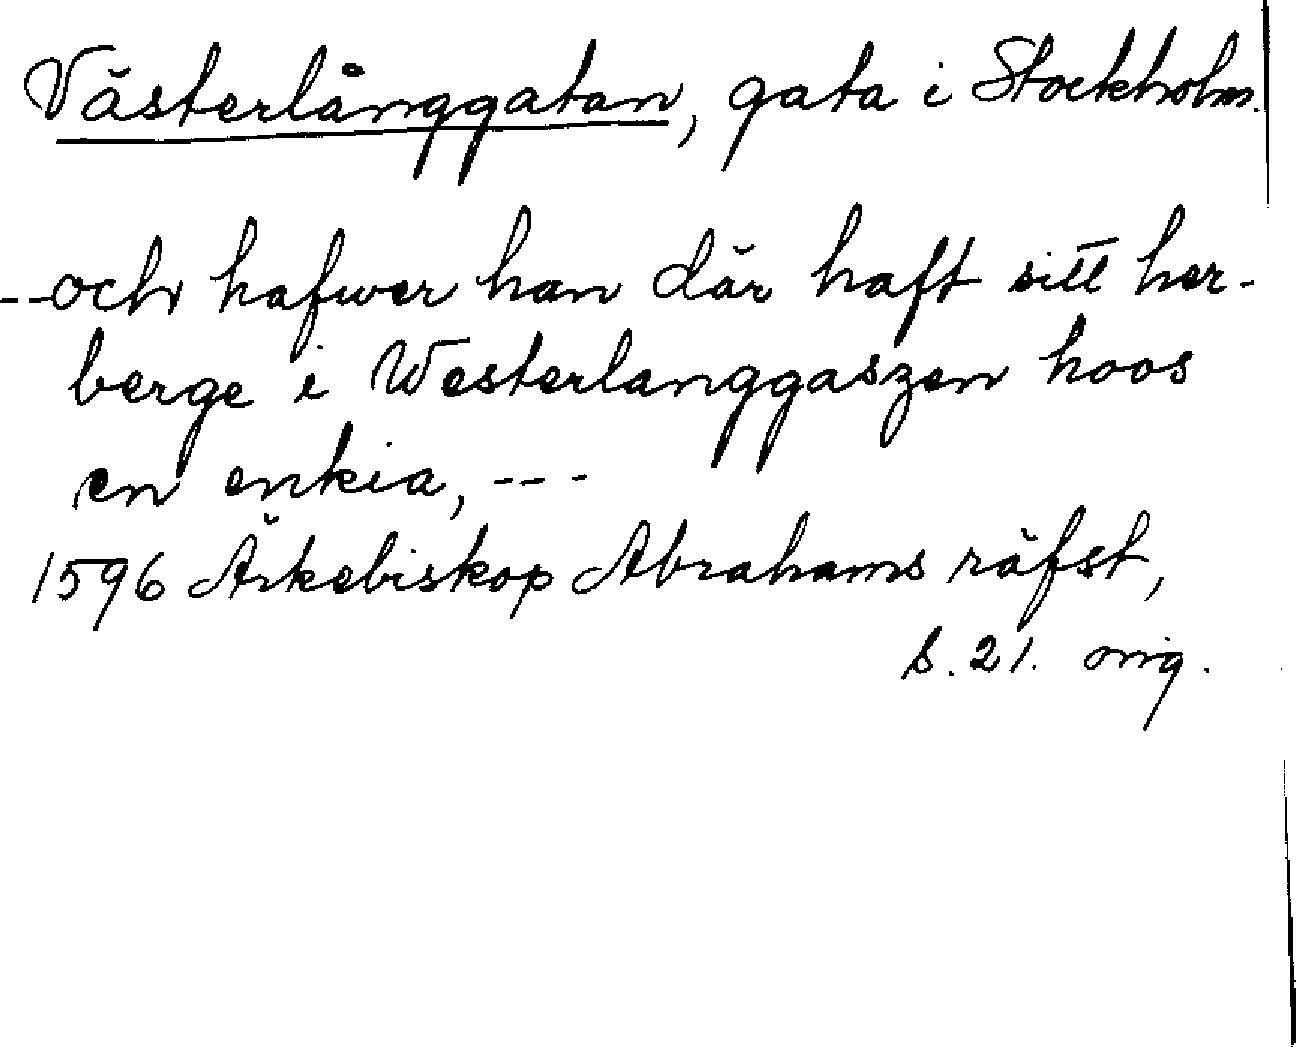 Västerlånggatan, gata i Stockholm.
--och hafwer han där haft sitt her-
berge i Westerlanggaszen hoos
en enkia, ---
1596 Ärkebiskop Abrahams räfst,
s. 21. orig.